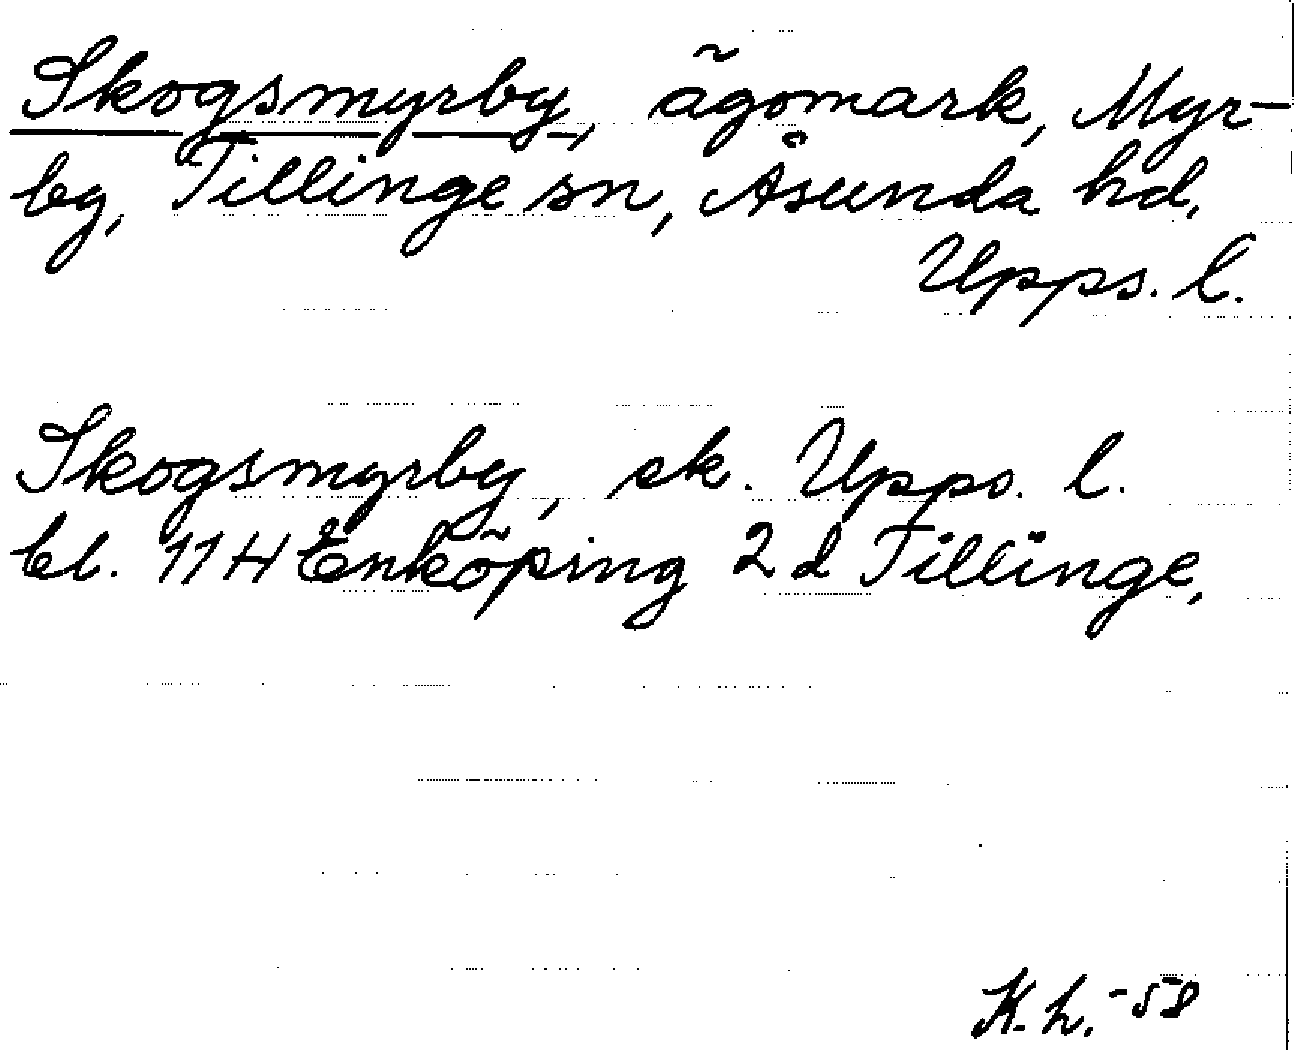 Skogsmyrby, ägomark, Myr-
by, Tillinge sn, Åsunda hd,
Upps. l.
Skogsmyrby, sk. Upps. l.
bl. 11 H Enköping 2 d Tillinge,
K. L. -58